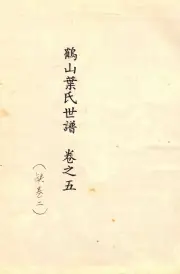 鶴山葉氏世譜 卷之五
（缺卷二）